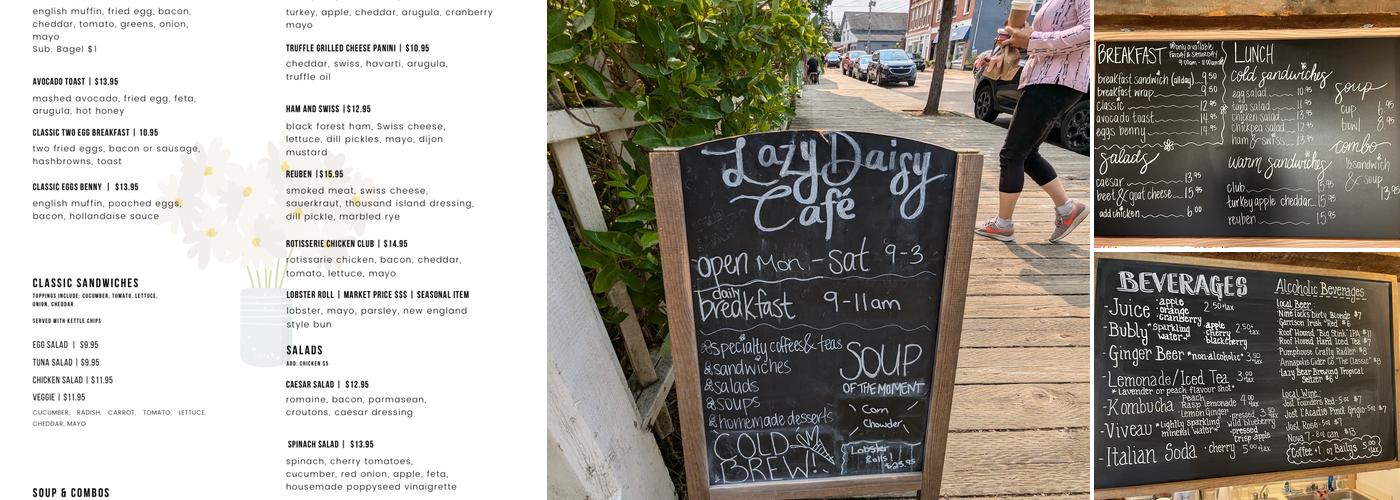 english muffin, fried egg, bacon,
cheddar, tomato, greens, onion,
mayo
Sub. Bagel $1
AVOCADO TOAST | $13.95
mashed avocado, fried egg, feta,
arugula, hot honey
CLASSIC TWO EGG BREAKFAST | 10.95
two fried eggs, bacon or sausage,
hashbrowns, toast
CLASSIC EGGS BENNY | $13.95
english muffin, poached eggs,
bacon, hollandaise sauce
CLASSIC SANDWICHES
TOPPINGS INCLUDE: CUCUMBER, TOMATO, LETTUCE,
ONION, CHEDDAR
SERVED WITH KETTLE CHIPS
EGG SALAD | $9.95
TUNA SALAD | $9.95
CHICKEN SALAD | $11.95
VEGGIE | $11.95
CUCUMBER, RADISH, CARROT, TOMATO, LETTUCE,
CHEDDAR, MAYO
SOUP & COMBOS
turkey, apple, cheddar, arugula, cranberry
mayo
TRUFFLE GRILLED CHEESE PANINI | $10.95
cheddar, swiss, havarti, arugula,
truffle oil
HAM AND SWISS |$12.95
black forest ham, Swiss cheese,
lettuce, dill pickles, mayo, dijon
mustard
REUBEN |$15.95
smoked meat, swiss cheese,
sauerkraut, thousand island dressing,
dill pickle, marbled rye
ROTISSERIE CHICKEN CLUB | $14.95
rotissarie chicken, bacon, cheddar,
tomato, lettuce, mayo
LOBSTER ROLL | MARKET PRICE $$$ | SEASONAL ITEM
lobster, mayo, parsley, new england
style bun
SALADS
ADD: CHICKEN $5
CAESAR SALAD | $12.95
romaine, bacon, parmasean,
croutons, caesar dressing
SPINACH SALAD | $13.95
spinach, cherry tomatoes,
cucumber, red onion, apple, feta,
housemade poppyseed vinaigrette
Lazy Daisy
Café
open Mon - Sat 9-3
daily
breakfast 9-11am
specialty coffees & teas
sandwiches
salads
soups
homemade desserts
COLD
BREW!
SOUP
OF THE MOMENT
Corn
Chowder
Lobster
Rolls!
$25.95
BREAKFAST
only available
FRIDAY & SATURDAY
9:00am - 11:00am
breakfast sandwich (all day) 9.50
breakfast wrap 9.50
classic 12.95
avocado toast 14.95
eggs benny 14.95
salads
caesar 13.95
beet & goat cheese 15.95
add chicken 6.00
LUNCH
cold sandwiches
egg salad 10.95
tuna salad 11.95
chicken salad 13.95
chickpea salad 13.95
ham & swiss 13.95
warm sandwiches
club 15.95
turkey apple cheddar 15.95
reuben 15.95
soup
cup 6.95
bowl 8.95
combo
½ sandwich
& soup
13.95
BEVERAGES
- Juice apple orange cranberry 2.50 +tax
- Bubly sparkling water apple cherry blackcherry 2.50 +tax
- Ginger Beer *non-alcoholic* 3.50 +tax
- Lemonade/Iced Tea 3.00 +tax
*Lavender or peach flavour shot*
- Kombucha Peach Rasp lemonade Lemon Ginger 4.00 +tax
- Viveau *Lightly sparkling mineral water* pressed wild blueberry pressed crisp apple 3.50 +tax
- Italian Soda cherry 5.00 +tax
Alcoholic Beverages
Local Beer:
Nine Locks Dirty Blonde $7
Garrison Irish "Red" $6
Roof Hound "Big Stink" IPA $11
Roof Hound Hard Iced Tea $7
Pumphouse Crafty Radler $8
Annapolis Cider Co. "The Classic" $8
Lazy Bear Brewing Tropical
Seltzer $6
Local Wine:
Jost Founders Red - 5oz $7
Jost l'Acadie Pinot Grigio - 5oz $7
Jost Rosé - 5oz $7
Nova 7 - 8oz can $13
Coffee + 1oz Baileys 5.00 +tax